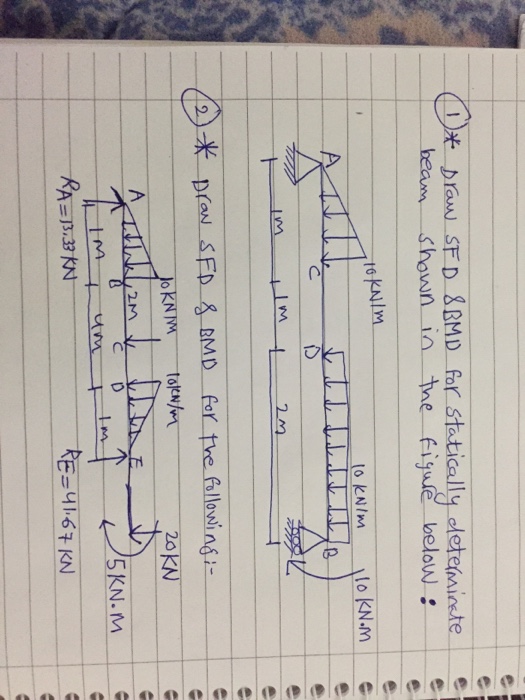 ① * Draw SFD & BMD for statically determinate
beam shown in the figure below :
10 KN/M
10 KN/M
10 KN.M
A
C
D
B
1M
1M
2M
② * Draw SFD & BMD for the following :-
10 KN/M
10 KN/M
20 KN
A
B
2M
C
D
E
5 KN.M
1M
4M
1M
RA = 13.33 KN
RE = 41.67 KN